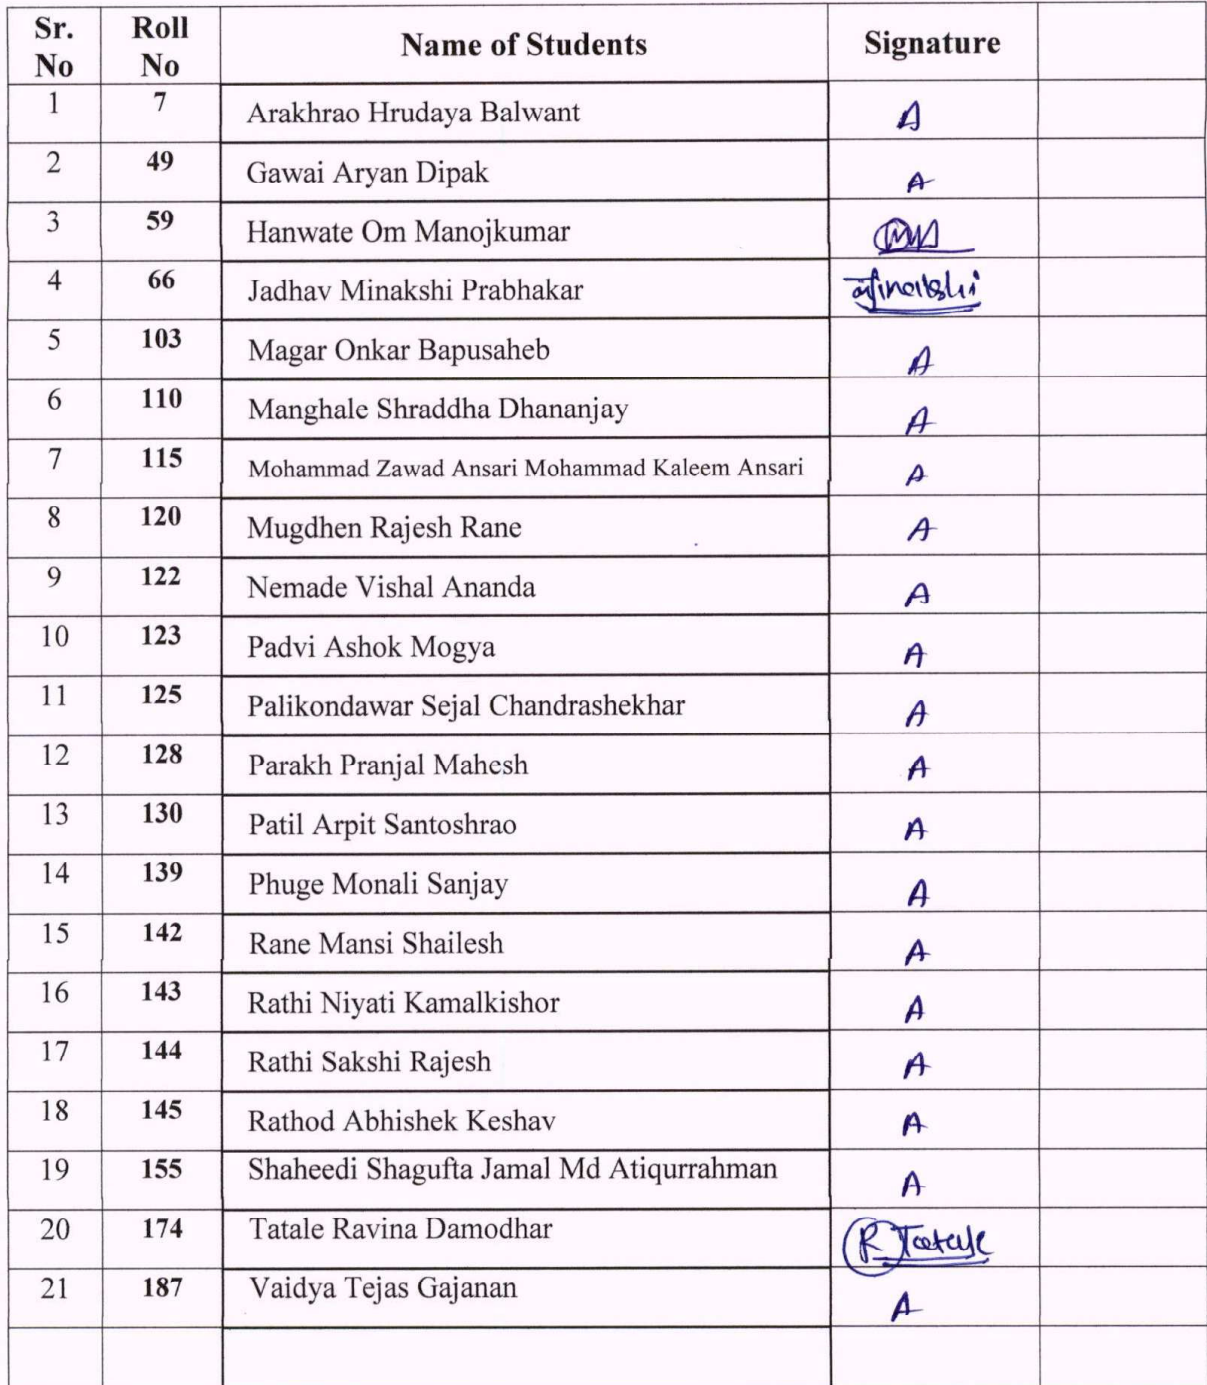 Sr. No Roll No Name of Students Signature
1 7 Arakhrao Hrudaya Balwant A
2 49 Gawai Aryan Dipak A
3 59 Hanwate Om Manojkumar
4 66 Jadhav Minakshi Prabhakar
5 103 Magar Onkar Bapusaheb A
6 110 Manghale Shraddha Dhananjay A
7 115 Mohammad Zawad Ansari Mohammad Kaleem Ansari A
8 120 Mugdhen Rajesh Rane A
9 122 Nemade Vishal Ananda A
10 123 Padvi Ashok Mogya A
11 125 Palikondawar Sejal Chandrashekhar A
12 128 Parakh Pranjal Mahesh A
13 130 Patil Arpit Santoshrao A
14 139 Phuge Monali Sanjay A
15 142 Rane Mansi Shailesh A
16 143 Rathi Niyati Kamalkishor A
17 144 Rathi Sakshi Rajesh A
18 145 Rathod Abhishek Keshav A
19 155 Shaheedi Shagufta Jamal Md Atiqurrahman A
20 174 Tatale Ravina Damodhar R Tatale
21 187 Vaidya Tejas Gajanan A